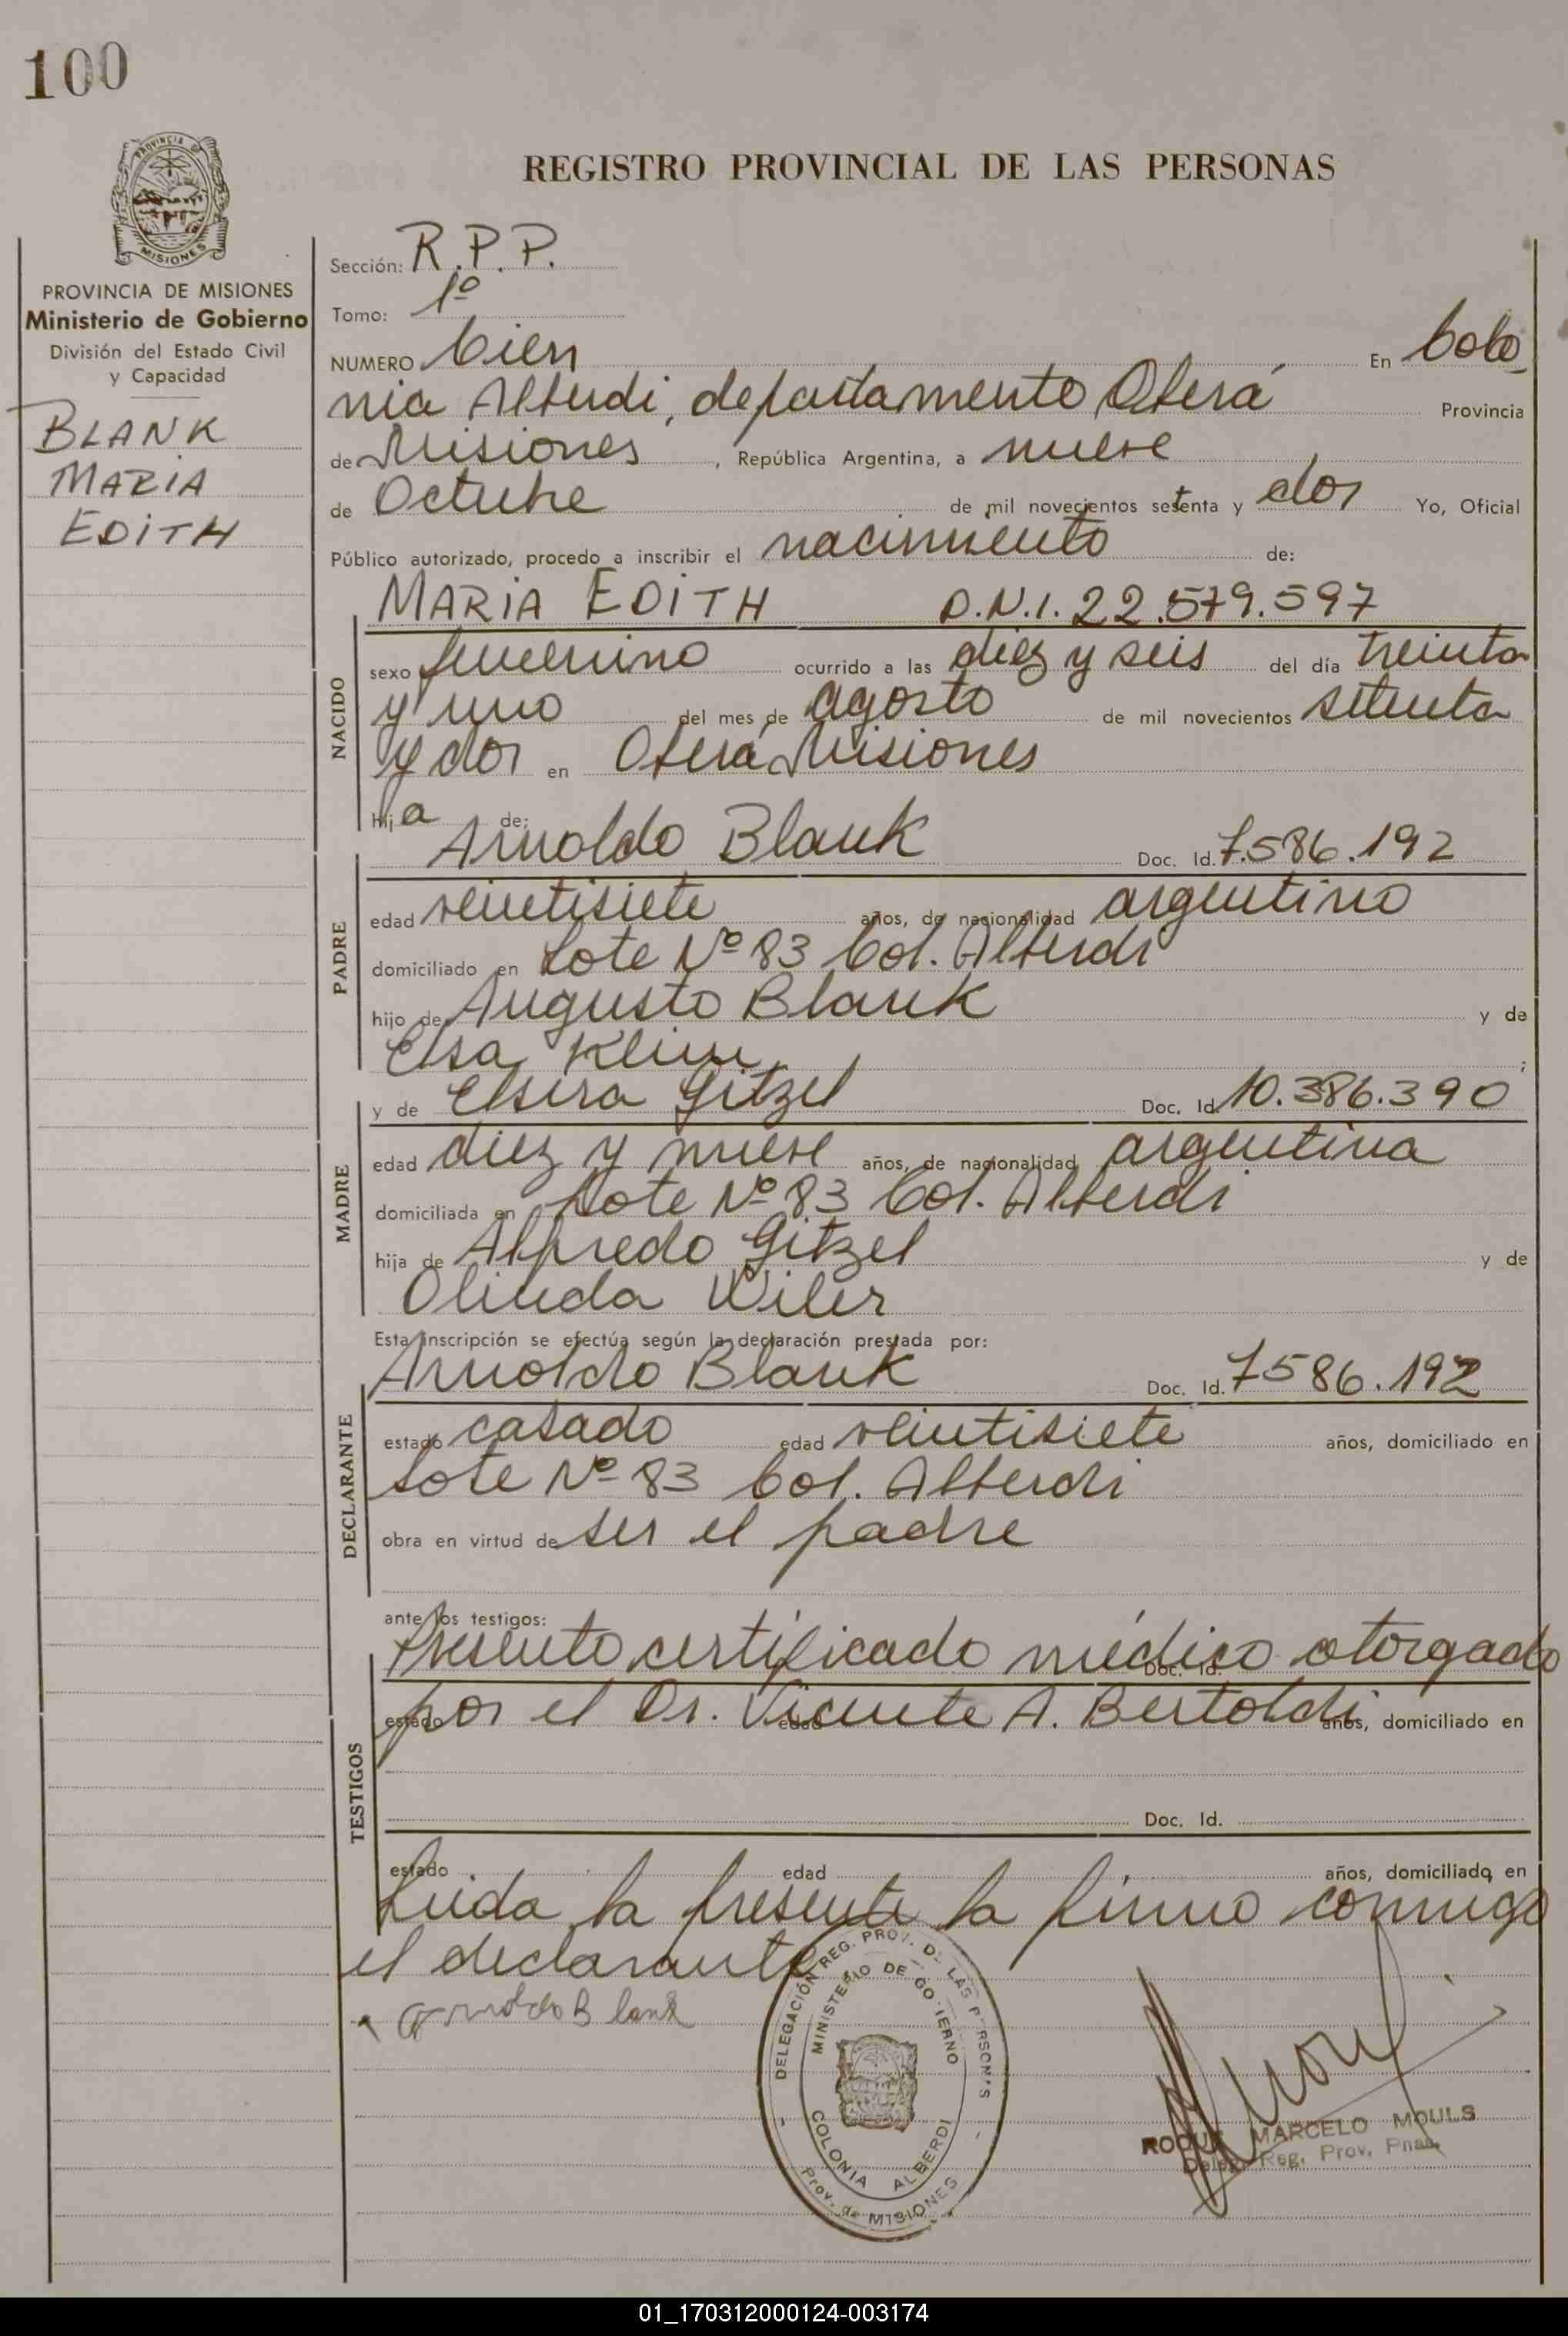 100
REGISTRO PROVINCIAL DE LAS PERSONAS
PROVINCIA DE MISIONES
PROVINCIA DE MISIONES
Ministerio de Gobierno
División del Estado Civil
y Capacidad
BLANK
MARIA
EDITH
Sección: R.P.P.
Tomo: 1º
NUMERO Cien En Colo
nia Alberdi, departamento Oberá Provincia
de Misiones, República Argentina, a nueve
de Octubre de mil novecientos setenta y dos Yo, Oficial
Público autorizado, procedo a inscribir el nacimiento de:
NACIDO
MARIA EDITH D.N.I. 22.579.597
sexo femenino ocurrido a las diez y seis del día treinta
y uno del mes de agosto de mil novecientos setenta
y dos en Oberá Misiones
hija de:
PADRE
Arnoldo Blank Doc. Id. 7.586.192
edad veintisiete años, de nacionalidad argentino
domiciliado en Lote Nº 83 Col. Alberdi
hijo de Augusto Blank y de
Elsa Klein;
MADRE
y de Elvira Gitzel Doc. Id. 10.386.390
edad diez y nueve años, de nacionalidad argentina
domiciliada en Lote Nº 83 Col. Alberdi
hija de Alfredo Gitzel y de
Olinda
Esta inscripción se efectúa según la declaración prestada por:
DECLARANTE
Arnoldo Blank Doc. Id. 7586.192
estado casado edad veintisiete años, domiciliado en
Lote Nº 83 Col. Alberdi
obra en virtud de ser el padre
ante los testigos:
TESTIGOS
Presento certificado médico otorgado Doc. Id.
estado por el Dr. Vicente A. Bertoldi edad años, domiciliado en
Doc. Id.
estado edad años, domiciliado en
Leida la presente la firma conmigo
el declarante
Arnoldo Blank
DELEGACIÓN REG. PROV. DE LAS PERSONAS
MINISTERIO DE GOBIERNO
COLONIA ALBERDI
Prov. de MISIONES
ROQUE MARCELO MOULS
Deleg. Reg. Prov. Pnas.
01_170312000124-003174